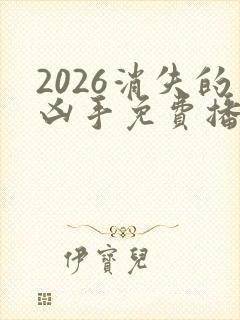 2026消失的
凶手免費播
伊寶兒